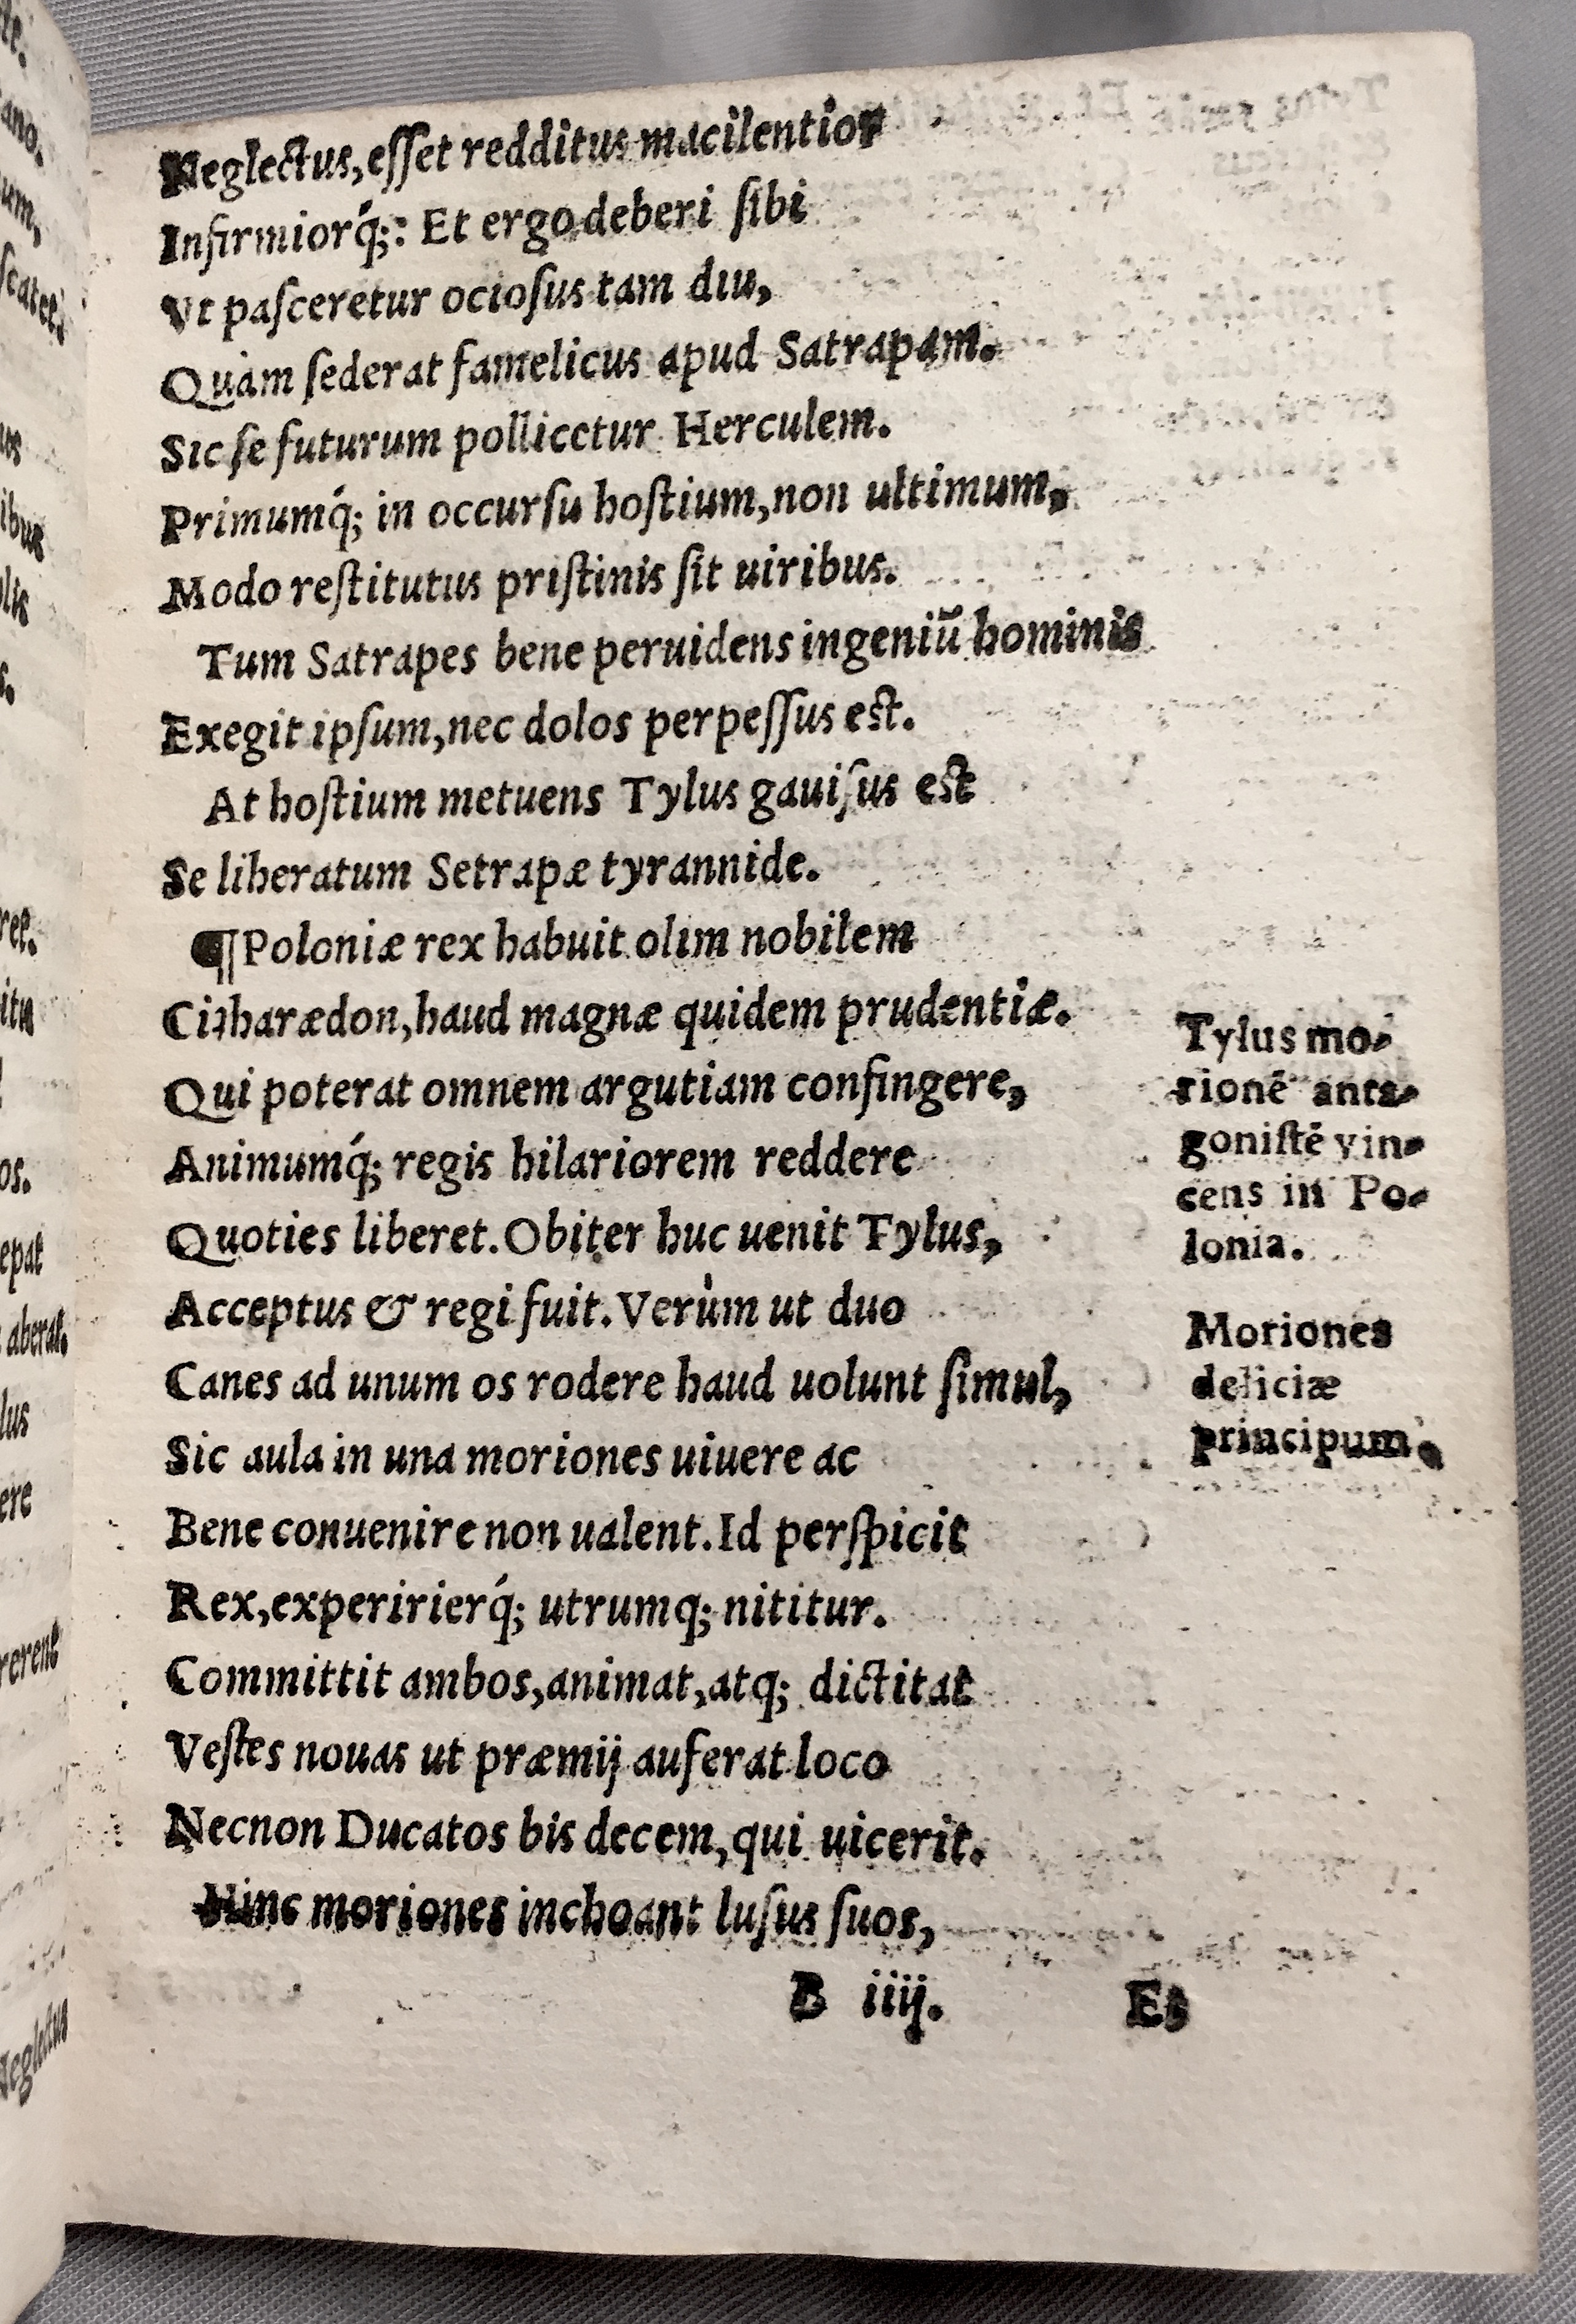 Neglectus,eſſet redditus macilentior
Infirmiorq́;: Et ergo deberi ſibi
Vt paſceretur ocioſus tam diu,
Quàm ſederat famelicus apud Satrapam.
Sic ſe futurum pollicetur Herculem.
Primumq́; in occurſu hoſtium,non ultimum,
Modo reſtitutus priſtinis ſit uiribus.
Tum Satrapes bene peruidens ingeniũ hominis
Exegit ipſum,nec dolos perpeſſus eſt.
At hoſtium metuens Tylus gauiſus eſt
Se liberatum Setrapæ tyrannide.
¶Poloniæ rex habuit olim nobilem
Citharædon,haud magnæ quidem prudentiæ.
Qui poterat omnem argutiam confingere,
Animumq́; regis hilariorem reddere
Quoties liberet.Obiter huc uenit Tylus,
Acceptus & regi fuit.Verùm ut duo
Canes ad unum os rodere haud uolunt ſimul,
Sic aula in una moriones uiuere ac
Bene conuenire non ualent.Id perſpicit
Rex,experirierq́; utrumq; nititur.
Committit ambos,animat,atq; dictitat
Veſtes nouas ut præmij auferat loco
Necnon Ducatos bis decem,qui uicerit.
Hinc moriones inchoant luſus ſuos,
B iiij.
Et
Tylus mo-
rionē anta-
goniſtē vin-
cens in Po-
lonia.
Moriones
deliciæ
principum.
ibus
os.
lus
ere
Neglectus